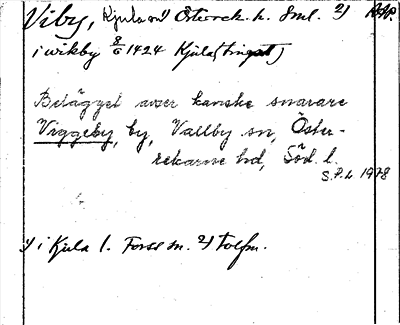 Viby, Kjula sn¹⁾ Österrek. h. Sml. ²⁾
i wikby 8/6 1424 Kjula (tinget)
Belägget avser kanske snarare
Viggeby, by, Vallby sn, Öster-
rekarne hd, Söd. l.
1978
1) i Kjula l. Forss sn. 2) tolfm.